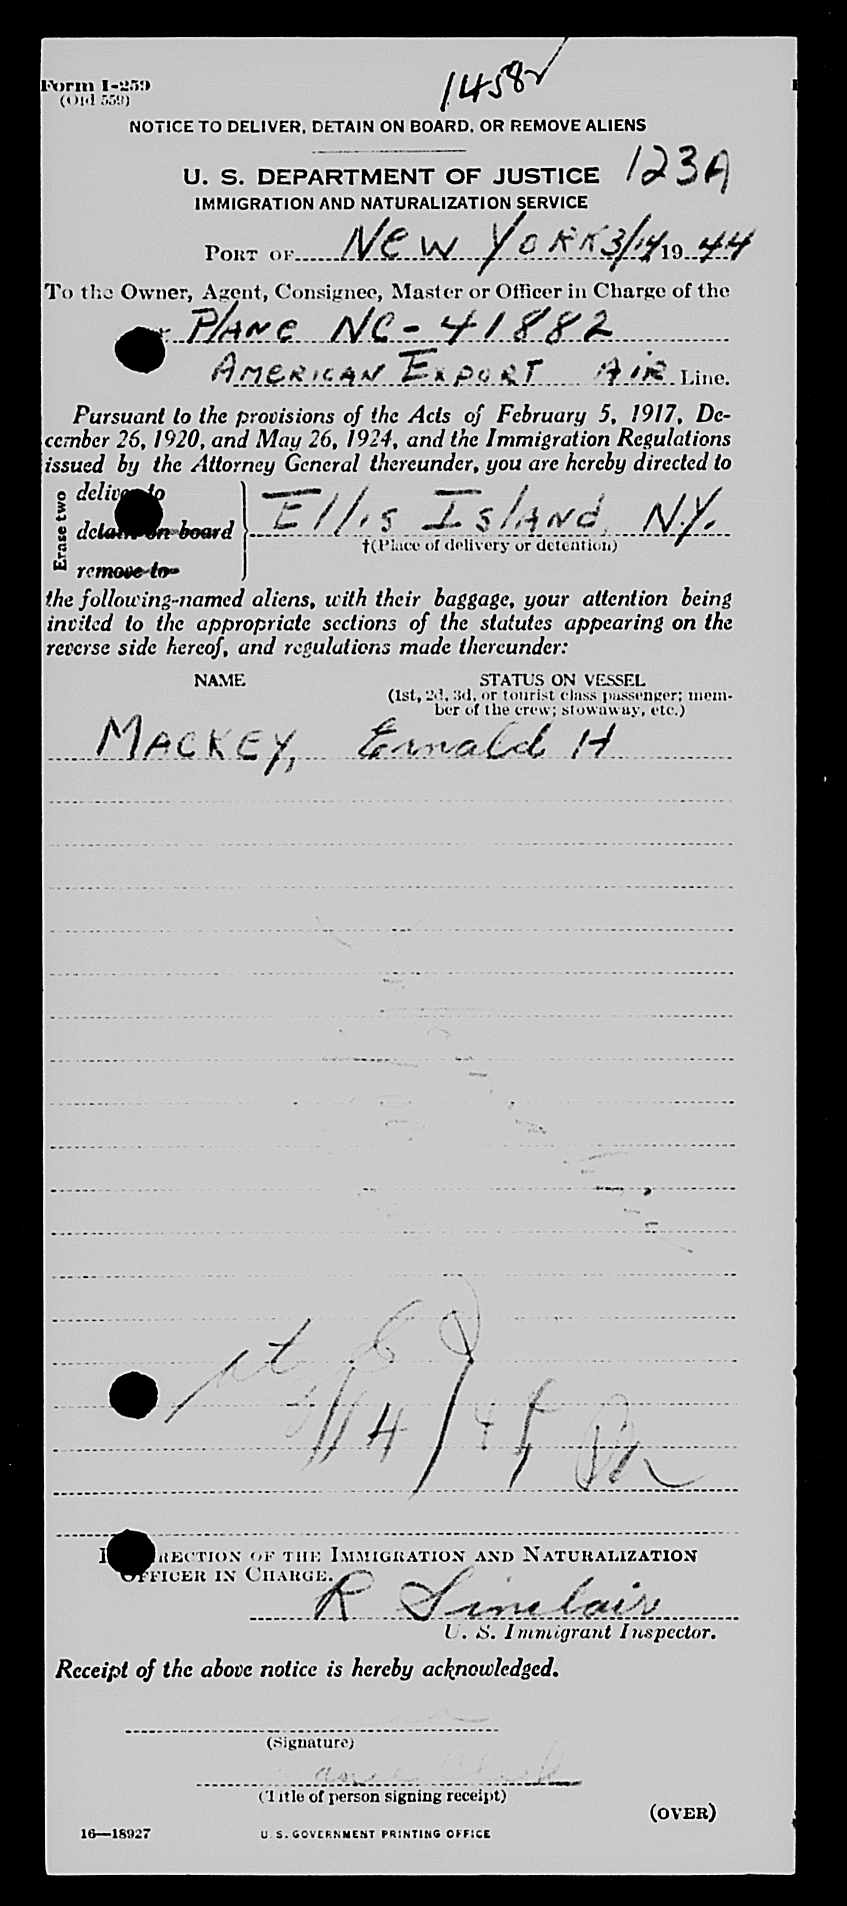 Form I-259
(Old 559)
1458✓
NOTICE TO DELIVER, DETAIN ON BOARD, OR REMOVE ALIENS
U. S. DEPARTMENT OF JUSTICE 123A
IMMIGRATION AND NATURALIZATION SERVICE
PORT OF NEW YORK 3/14 19 44
To the Owner, Agent, Consignee, Master or Officer in Charge of the
PLANE NC-41882
AMERICAN EXPORT AIR Line.
Pursuant to the provisions of the Acts of February 5, 1917, De-
cember 26, 1920, and May 26, 1924, and the Immigration Regulations
issued by the Attorney General thereunder, you are hereby directed to
Erase two
deliver to
detain on board
remove to
Ellis Island, N.Y.
†(Place of delivery or detention)
the following-named aliens, with their baggage, your attention being
invited to the appropriate sections of the statutes appearing on the
reverse side hereof, and regulations made thereunder:
NAME STATUS ON VESSEL
(1st, 2d, 3d, or tourist class passenger; mem-
ber of the crew; stowaway, etc.)
MACKEY, Ernald H
/14/44
RECTION OF THE IMMIGRATION AND NATURALIZATION
OFFICER IN CHARGE.
R Sinclair
U. S. Immigrant Inspector.
Receipt of the above notice is hereby acknowledged.
(Signature)
(Title of person signing receipt)
(OVER)
16—18927 U. S. GOVERNMENT PRINTING OFFICE